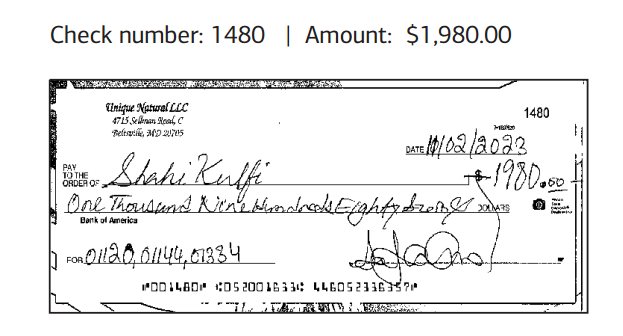 Check number: 1480 | Amount: $1,980.00
Unique Natural LLC
4715 Sellman Road, C
Beltsville, MD 20705
1480
DATE 11/02/2023
PAY TO THE ORDER OF Shahi Kulfi $ 1980.00
One Thousand Nine Hundreds Eighty DOLLARS
Bank of America
FOR 01120,01144,01384